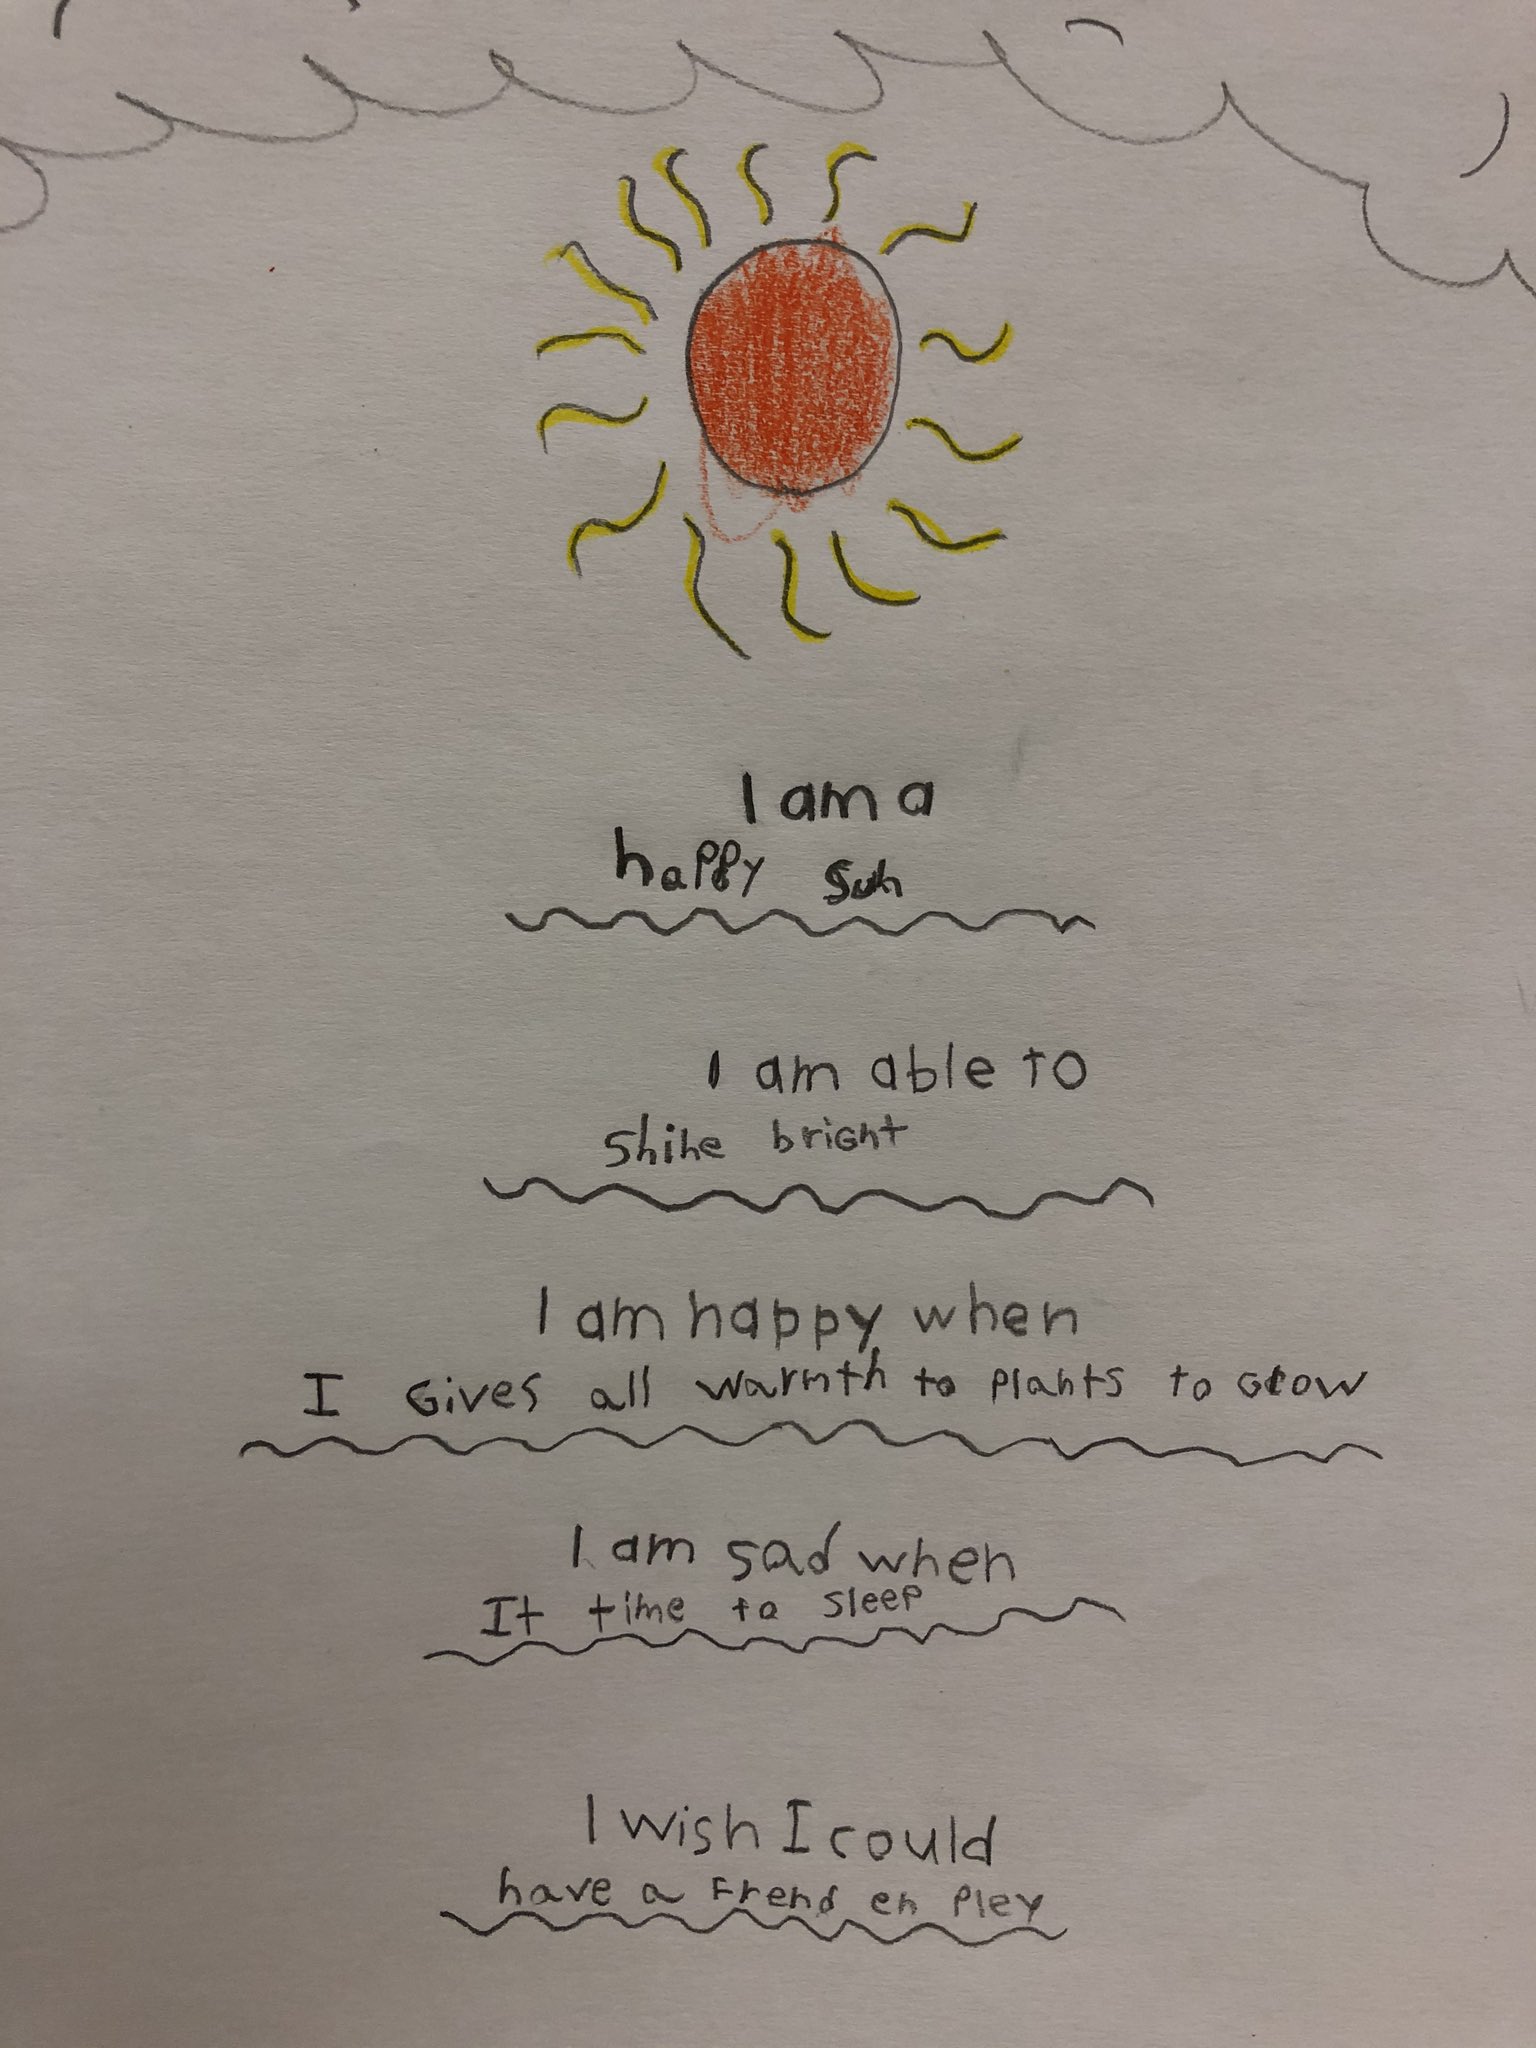 I am a
happy sun
I am able to
shine bright
I am happy when
I Gives all warmth to plants to Grow
I am sad when
It time to sleep
I wish I could
have a Frend en pley